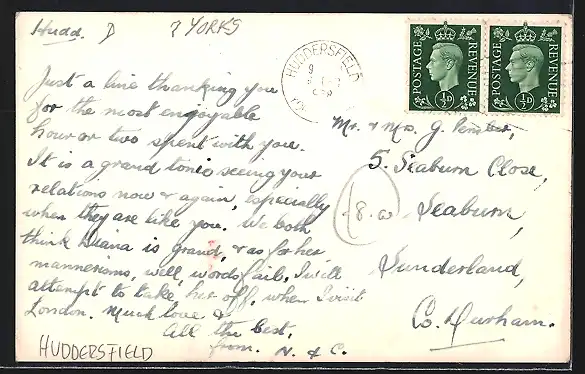 Hudd. D ? YORKS
Just a line thanking you
for the most enjoyable
hour or two spent with you.
It is a grand tonic seeing your
relations now & again, especially
when they are like you. We both
think Diana is grand, & as for her
mannerisms, well, words fail. I will
attempt to take her off, when I visit
London. Much love &
All the best,
from N. & C.
HUDDERSFIELD
HUDDERSFIELD
POSTAGE REVENUE
½D
POSTAGE REVENUE
½D
Mr. & Mrs. G.
5. Seaburn Close,
Seaburn,
Sunderland,
Co. Durham.